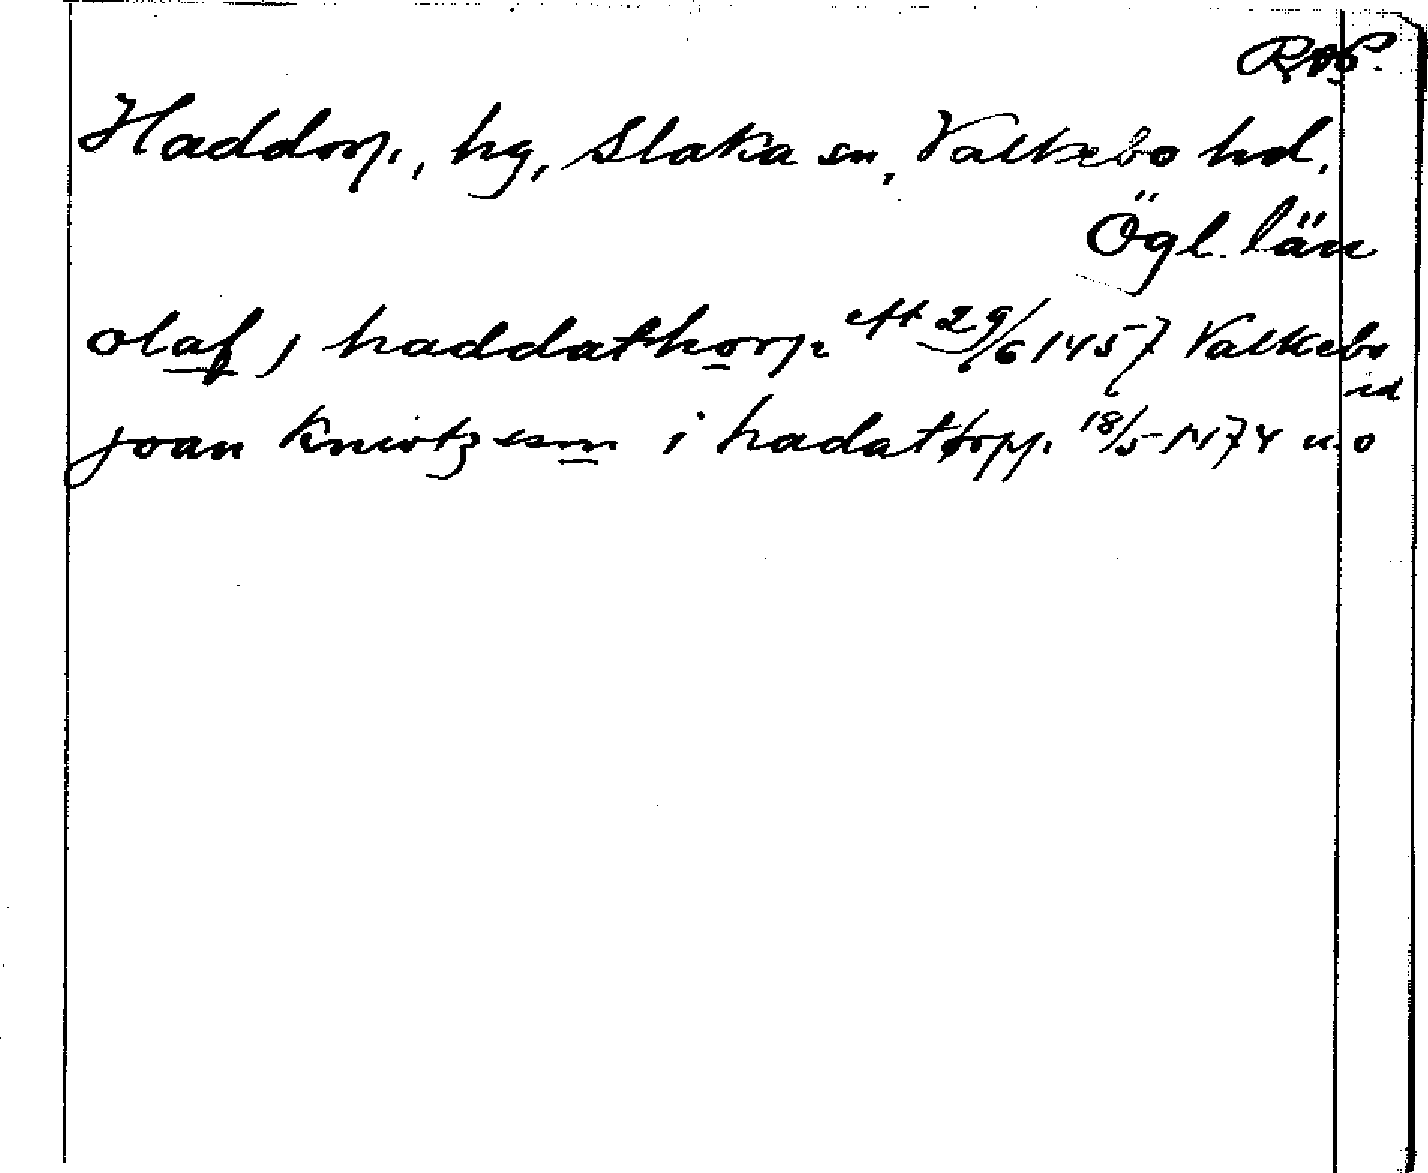 RAP.
Haddorp, hg, Slaka sn, Valkebo hd,
Ögl. län
olaf j haddathorp eft 29/6 1457 Valkebo
joan Knwtzesm i hadattorpp. 18/5 1474 u.o